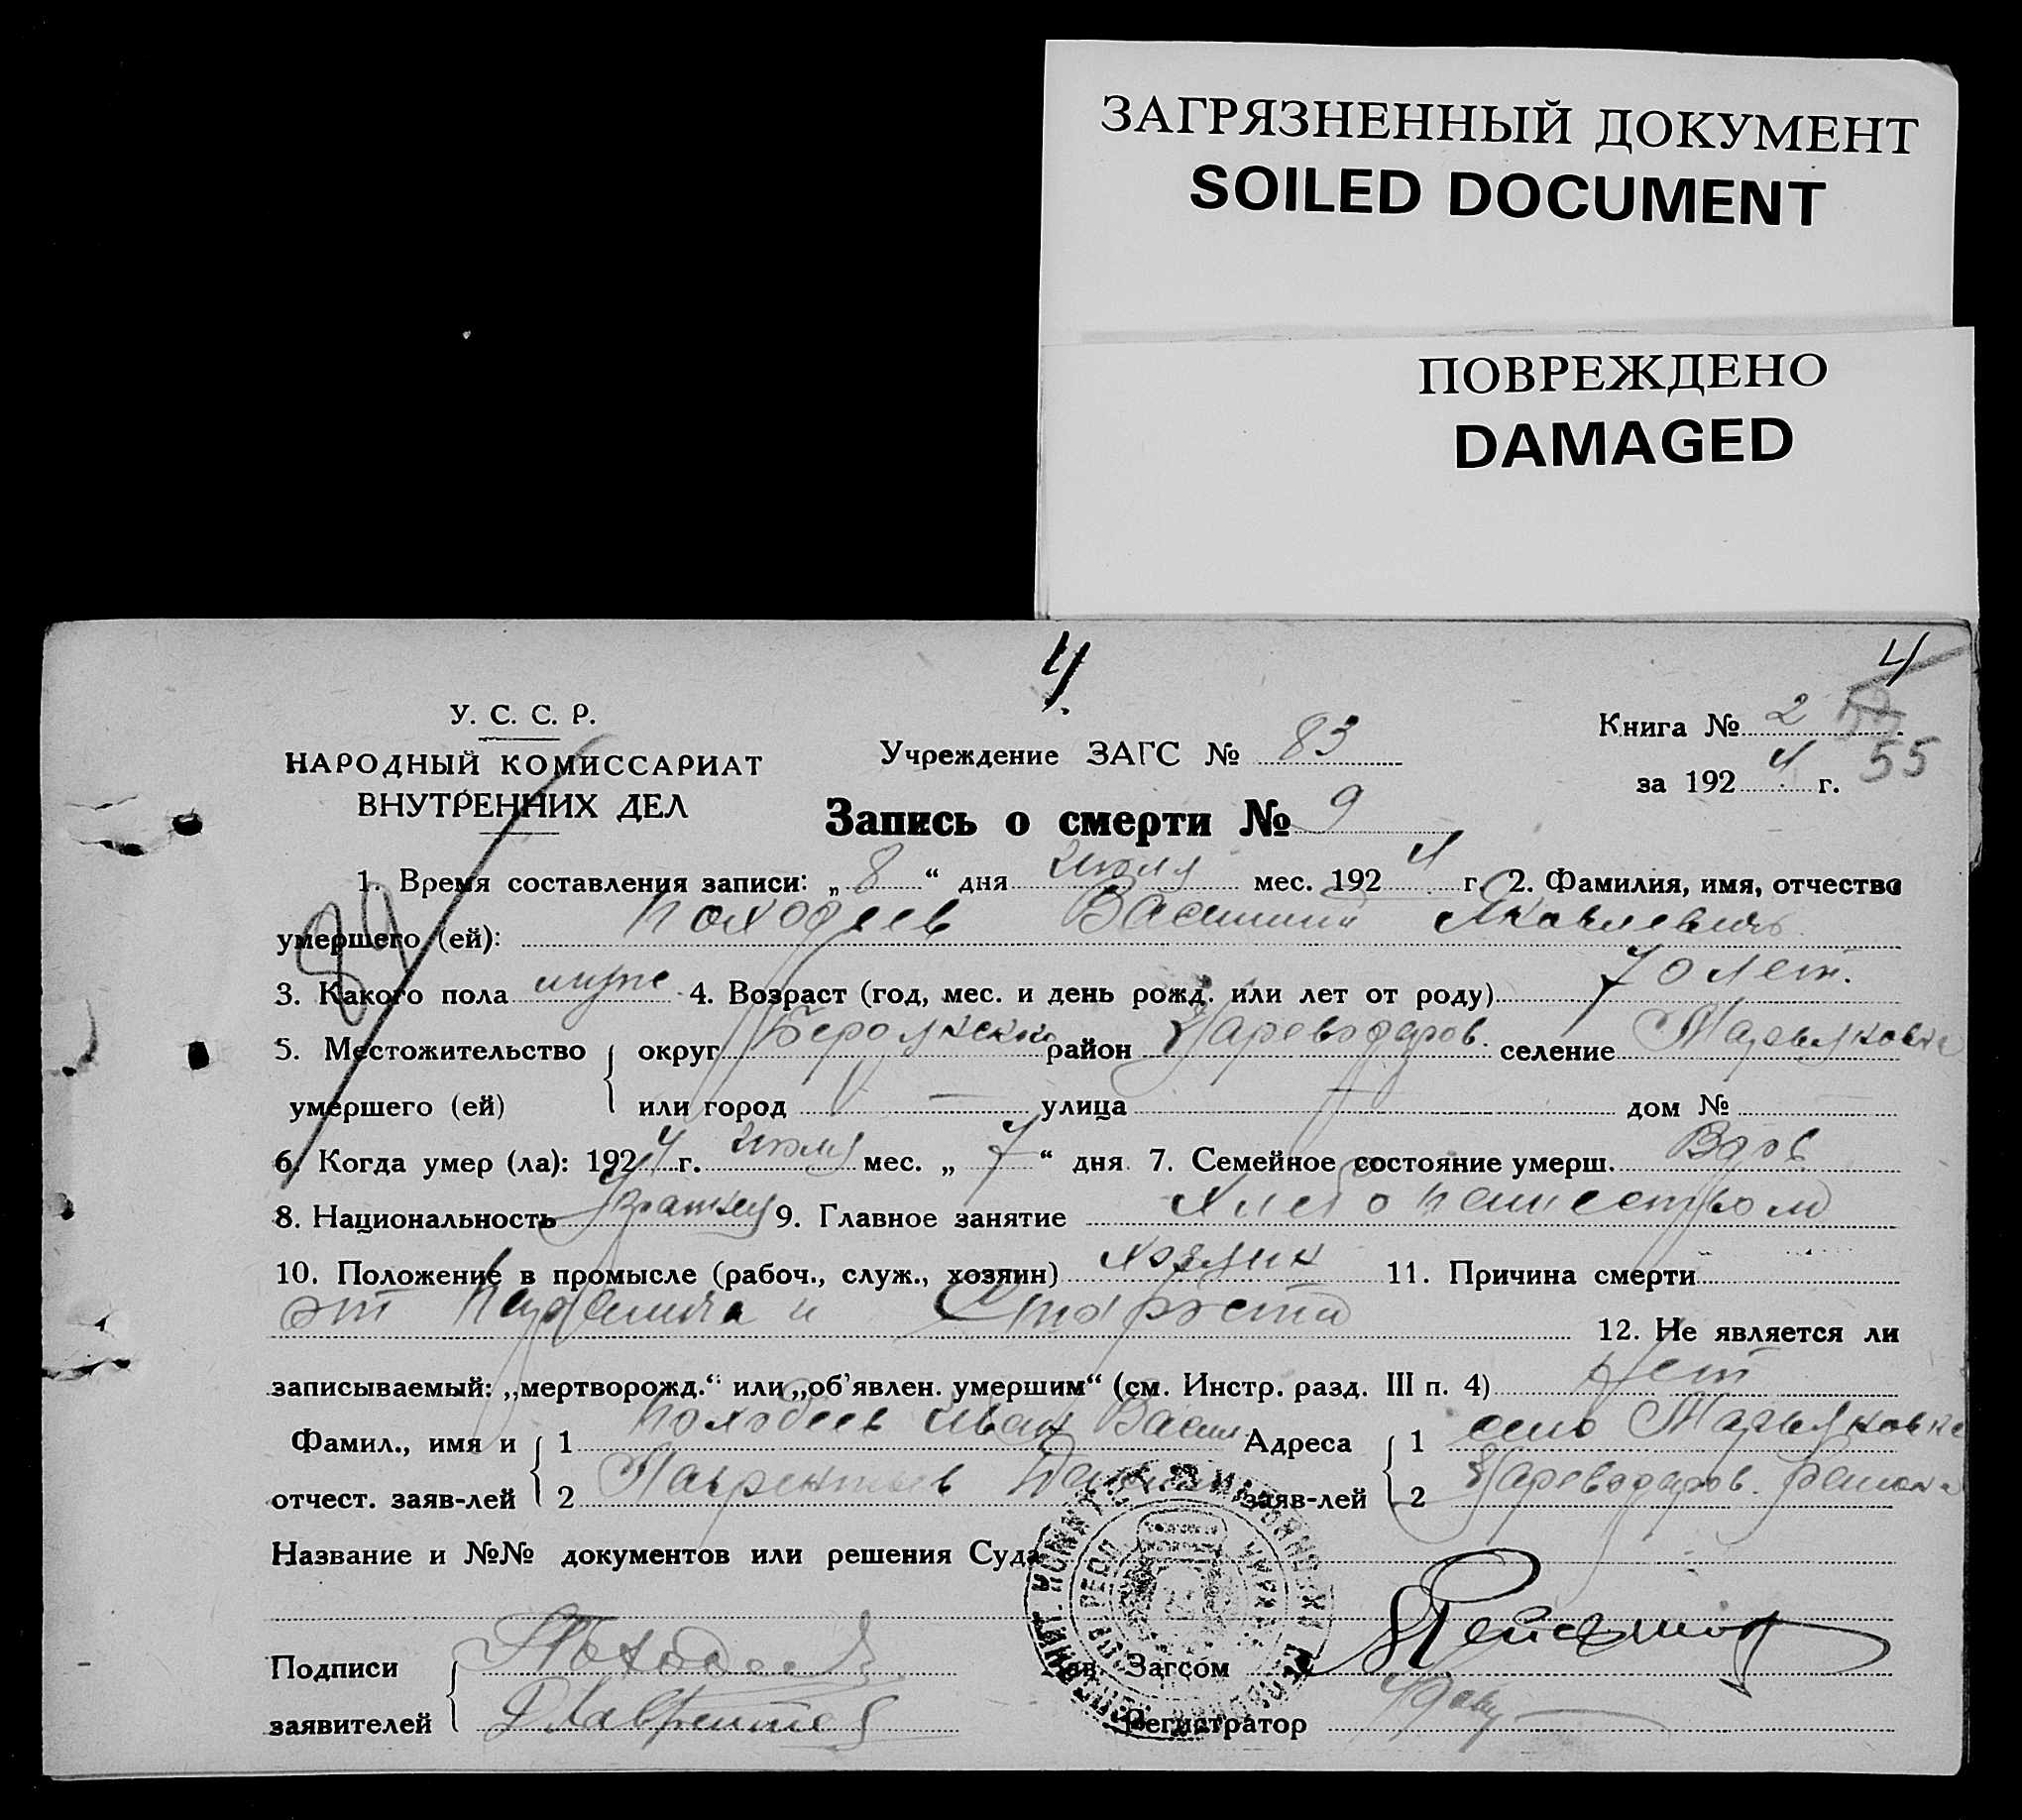 ЗАГРЯЗНЕННЫЙ ДОКУМЕНТ
SOILED DOCUMENT
ПОВРЕЖДЕНО
DAMAGED
4.
4
У. С. С. Р.
НАРОДНЫЙ КОМИССАРИАТ
ВНУТРЕННИХ ДЕЛ
Учреждение ЗАГС № 83
Книга № 2
за 1924 г. 55
Запись о смерти № 9
1. Время составления записи: „8“ дня июля мес. 1924 г. 2. Фамилия, имя, отчество
умершего (ей): Походеев Василий Яковлевичъ
3. Какого пола муже 4. Возраст (год, мес. и день рожд. или лет от роду) 70 лет.
5. Местожительство округ район Цареводаров. селение Марьяновка
умершего (ей) или город — улица — дом №
6. Когда умер (ла): 1924 г. июля мес. „7“ дня 7. Семейное состояние умерш. Вдов
8. Национальность 9. Главное занятие Хлебопашеством
10. Положение в промысле (рабоч., служ., хозяин) хозяин 11. Причина смерти
от и
12. Не является ли
записываемый: „мертворожд.“ или „об’явлен. умершим“ (см. Инстр. разд. III п. 4) Нет
Фамил., имя и 1 Походеев Иван Васил. Адреса 1 село Марьяновка
отчест. заяв-лей 2 Лаврентьев заяв-лей 2 Цареводаров. района
Название и №№ документов или решения Суда
Подписи Походеев Зав. Загсом
заявителей Лаврентьев Регистратор